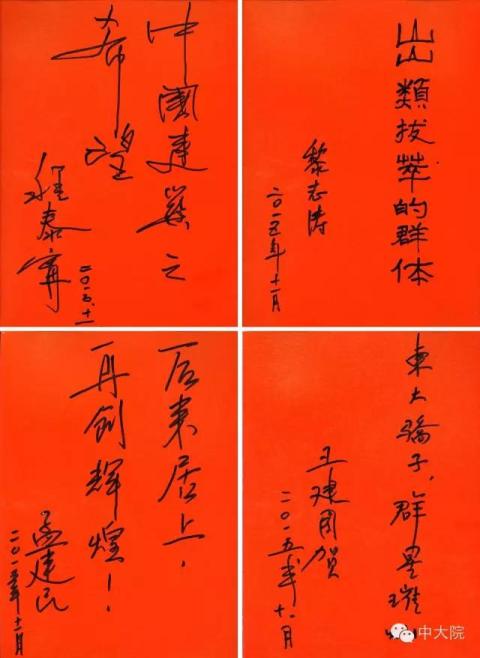 中國建築之
希望
程泰宁
二〇一五.十一
出類拔萃的群体
黎志涛
二〇一五年十一月
后来居上,
再创輝煌!
孟建民
二〇一五年十一月
東大骄子,群星璀
王建国贺
二〇一五年十一月
中大院